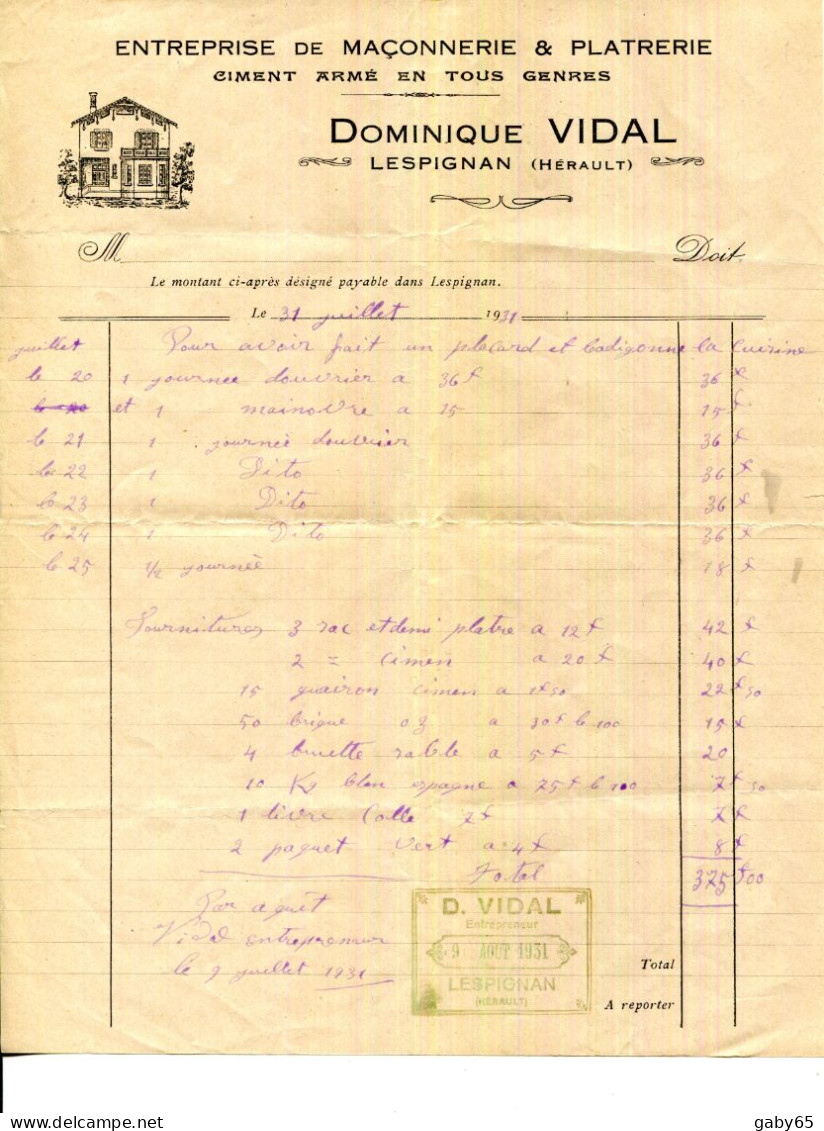 ENTREPRISE DE MAÇONNERIE & PLATRERIE
CIMENT ARMÉ EN TOUS GENRES
DOMINIQUE VIDAL
LESPIGNAN (HÉRAULT)
M Doit
Le montant ci-après désigné payable dans Lespignan.
Le 31 juillet 1931
juillet Pour avoir fait un placard et badigonne la Cuisine
le 20 1 journee douvrier a 36f 36 f
le 20 et 1 mainovre a 15 15 f
le 21 1 journée douvrier 36 f
le 22 1 Dito 36 f
le 23 1 Dito 36 f
le 24 1 Dito 36 f
le 25 1/2 journeè 18 f
Fournitures 3 sac et demi platre a 12f 42 f
2 = cimen a 20 f 40 f
15 cimen a 1f50 22 f 50
50 brique 03 a 30f le 100 15 f
4 a 5f 20
10 Kg blan espagne a 75f le 100 7 f 50
1 livre Colle 7f 7 f
2 paquet Vert a 4f 8 f
Total 375 f00
Par aquit
Vidal entrepreneur
le 9 juillet 1931
D. VIDAL
Entrepreneur
9 AOUT 1931
LESPIGNAN
(HÉRAULT)
Total
A reporter
gaby65